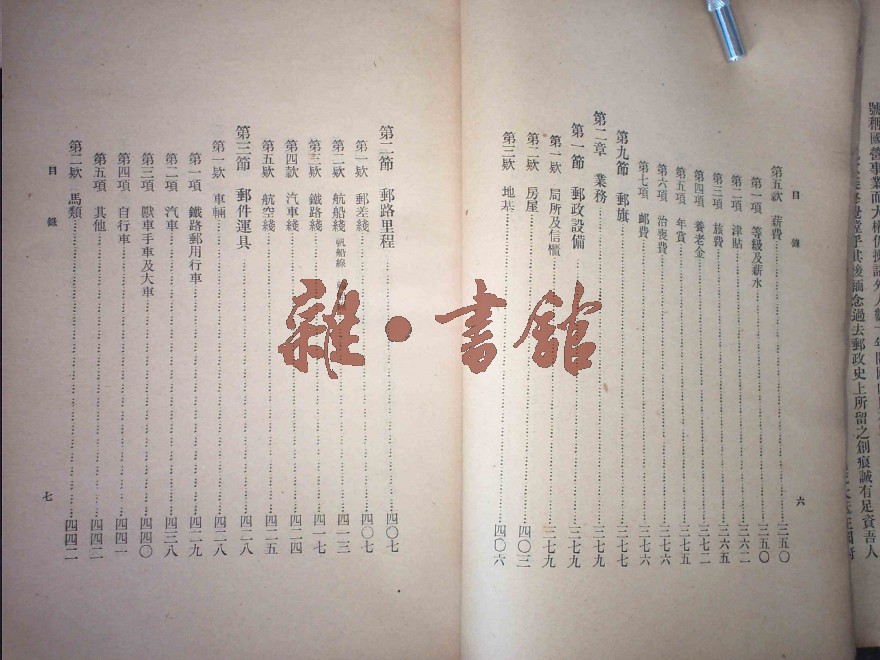 目錄
第五款 薪費 三五〇
第一項 等級及薪水 三五〇
第二項 津貼 三六二
第三項 旅費 三六五
第四項 養老金 三七二
第五項 年賞 三七六
第六項 治喪費 三七六
第七項 郵費 三七六
第九節 郵旗 三七七
第二章 業務 三七九
第一節 郵政設備 三七九
第一欵 局所及信櫃 三七九
第二欵 房屋 四〇三
第三欵 地基 四〇六
六
第二節 郵路里程 四〇七
第一欵 郵差綫 四〇七
第二欵 航船綫 帆船線 四一三
第三欵 鐵路綫 四一七
第四款 汽車綫 四二四
第五欵 航空綫 四二五
第三節 郵件運具 四二八
第一欵 車輛 四二八
第一項 鐵路郵用行車 四二九
第二項 汽車 四三八
第三項 獸車手車及大車 四四〇
第四項 自行車 四四一
第五項 其他 四四二
第二欵 馬類 四四二
目錄
七
號稱國營事業而大權仍操諸外人
其後緬念過去郵政史上所留之創痕誠有足資吾人
雜·書館